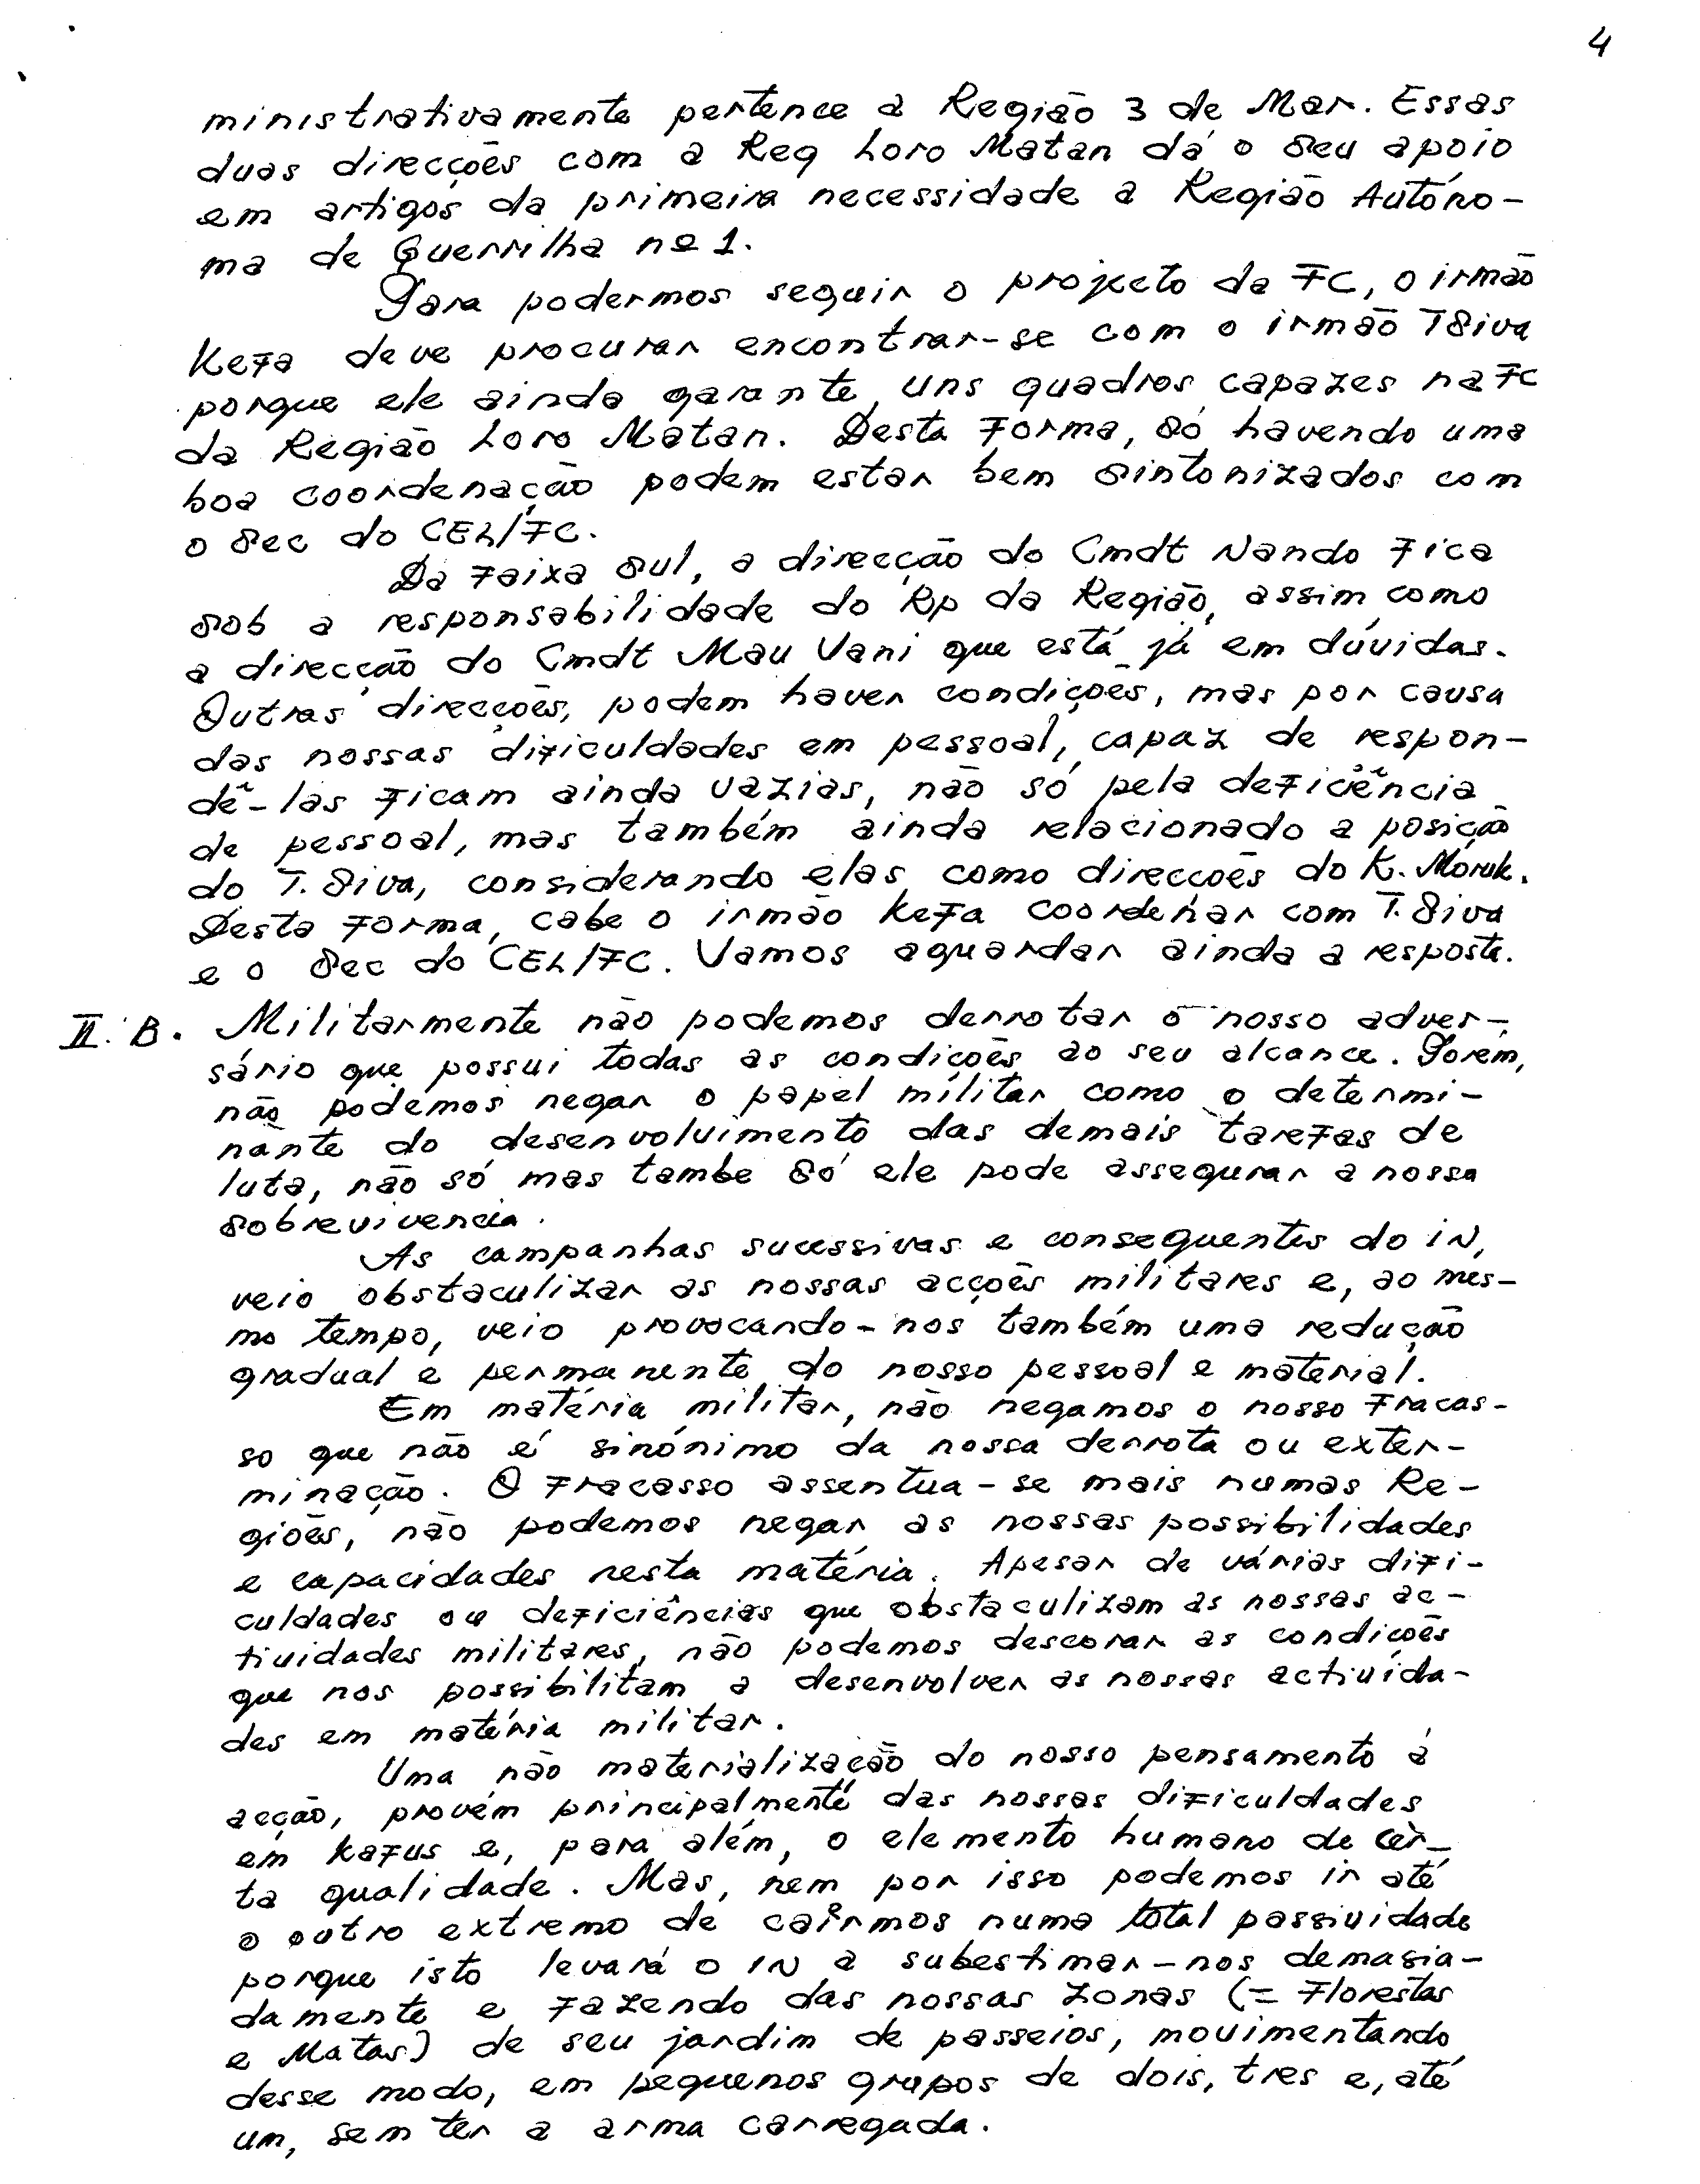 4
ministrativamente pertence a Região 3 de Mar. Essas
duas direcções com a Reg Loro Matan dá o seu apoio
em artigos da primeira necessidade a Região Autóno-
ma de Guerrilha nº 1.
Para podermos seguir o projecto da FC, o irmão
Kefa deve procurar encontrar-se com o irmão TSiva
porque ele ainda garante uns quadros capazes na FC
da Região Loro Matan. Desta Forma, só havendo uma
boa coordenação podem estar bem sintonizados com
o Sec do CEL/FC.
Da Faixa Sul, a direcção do Cmdt Nando Fica
sob a responsabilidade do Rp da Região, assim como
a direcção do Cmdt Mau Vani que está já em dúvidas.
Outras direcções, podem haver condições, mas por causa
das nossas dificuldades em pessoal, capaz de respon-
dê-las ficam ainda vazias, não só pela deficiência
de pessoal, mas também ainda relacionado a posição
do T. Siva, considerando elas como direccoēs do K. Moruk.
Desta Forma, cabe o irmão Kefa coordenar com T. Siva
e o Sec do CEL/FC. Vamos aguardar ainda a resposta.
II. B. Militarmente não podemos derrotar o nosso adver-
sário que possui todas as condições ao seu alcance. Porém,
não podemos negar o papel militar como o determi-
nante do desenvolvimento das demais tarefas de
luta, não só mas tambe só ele pode assegurar a nossa
sobrevivencia.
As campanhas sucessivas e consequentes do iN,
veio obstaculizar as nossas acções militares e, ao mes-
mo tempo, veio provocando-nos também uma redução
gradual e permanente do nosso pessoal e material.
Em matéria militar, não negamos o nosso Fracas-
so que não é sinónimo da nossa derrota ou exter-
minação. O Fracasso assentua-se mais numas Re-
giões, não podemos negar as nossas possibilidades
e capacidades nesta matéria. Apesar de várias difi-
culdades ou deficiências que obstaculizam as nossas ac-
tividades militares, não podemos descorar as condicoēs
que nos possibilitam a desenvolver as nossas activida-
des em matéria militar.
Uma não materialização do nosso pensamento á
acção, provém principalmente das nossas dificuldades
em kafus e, para além, o elemento humano de cer-
ta qualidade. Mas, nem por isso podemos ir até
o outro extremo de caírmos numa total passividade
porque isto levará o IN a subestimar-nos demasia-
damente e Fazendo das nossas zonas (= Florestas
e Matas) de seu jardim de passeios, movimentando
desse modo, em pequenos grupos de dois, tres e, até
um, sem ter a arma carregada.